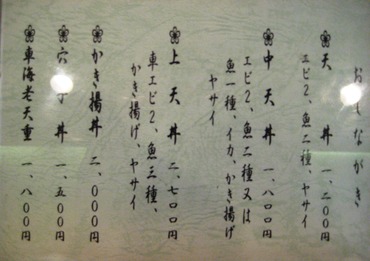 おしながき
天丼 一、二〇〇円
エビ2、魚二種、ヤサイ
中天丼 一、八〇〇円
エビ2、魚二種又は
魚一種、イカ、かき揚げ
ヤサイ
上天丼 二、七〇〇円
車エビ2、魚三種、
かき揚げ、ヤサイ
かき揚丼 二、〇〇〇円
穴子丼 一、五〇〇円
車海老天重 一、八〇〇円